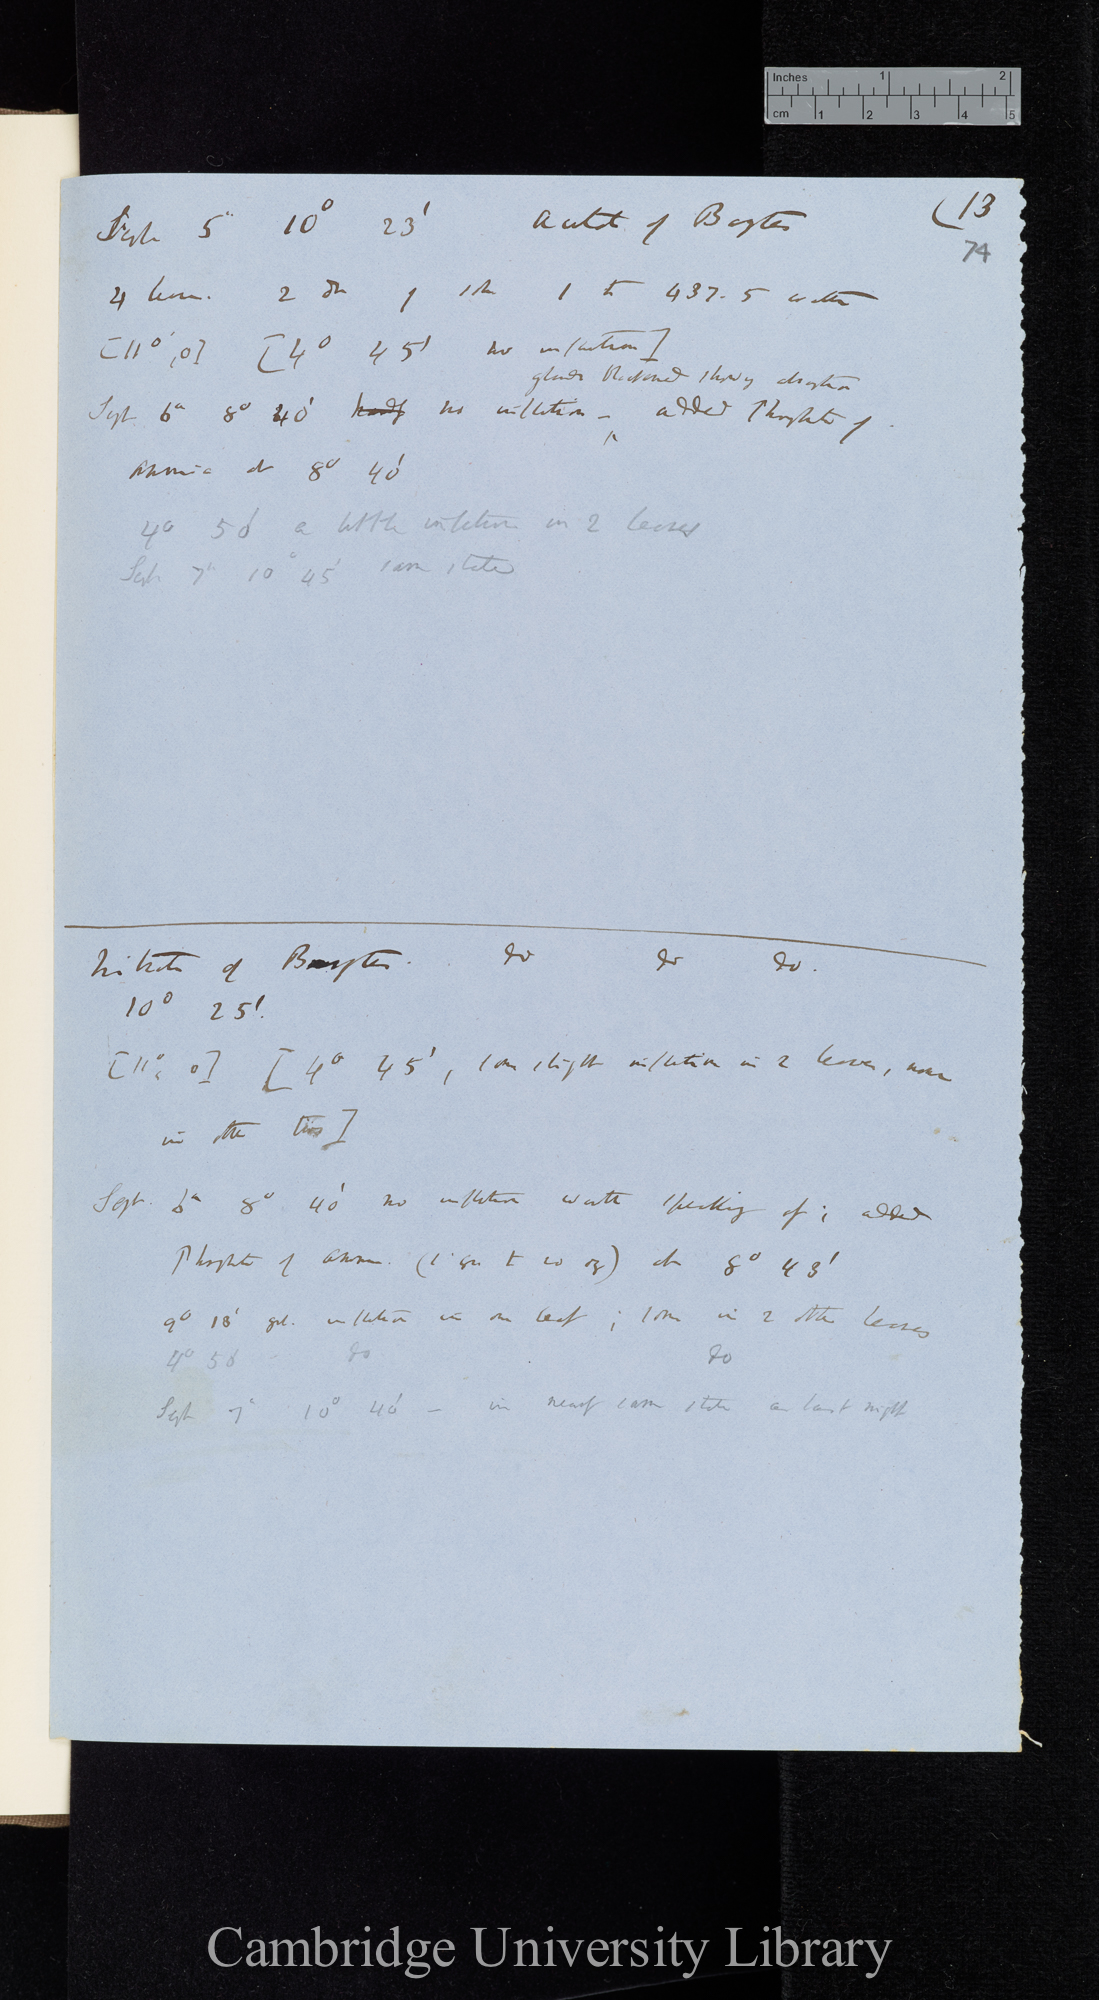 Inches 1 2
cm 1 2 3 4 5
(13
74
Sept 5th 10° 23' Acetate of Barytes
4 leaves. 2 of 1 to 437.5 water
[11°, 0] [4° 45' no inflection]
glands blackened showing absorption
Sept 6th 8° 40' no inflection – added Phosphate of
Ammonia at 8° 40'
4° 50' a little inflection in 2 leaves
Sept 7th 10° 45' same state
Nitrate of Barytes. do do do.
10° 25'.
[11°, 0] [4° 45', some slight inflection in 2 leaves, none
in other two]
Sept. 6th 8° 40' no inflection worth speaking of; added
Phosphate of Ammon. (1 gr to 20 oz) at 8° 43'
9° 18' grt. inflection in one leaf; some in 2 other leaves
4° 50' – do do
Sept 7th 10° 40' – in nearly same state as last night
Cambridge University Library